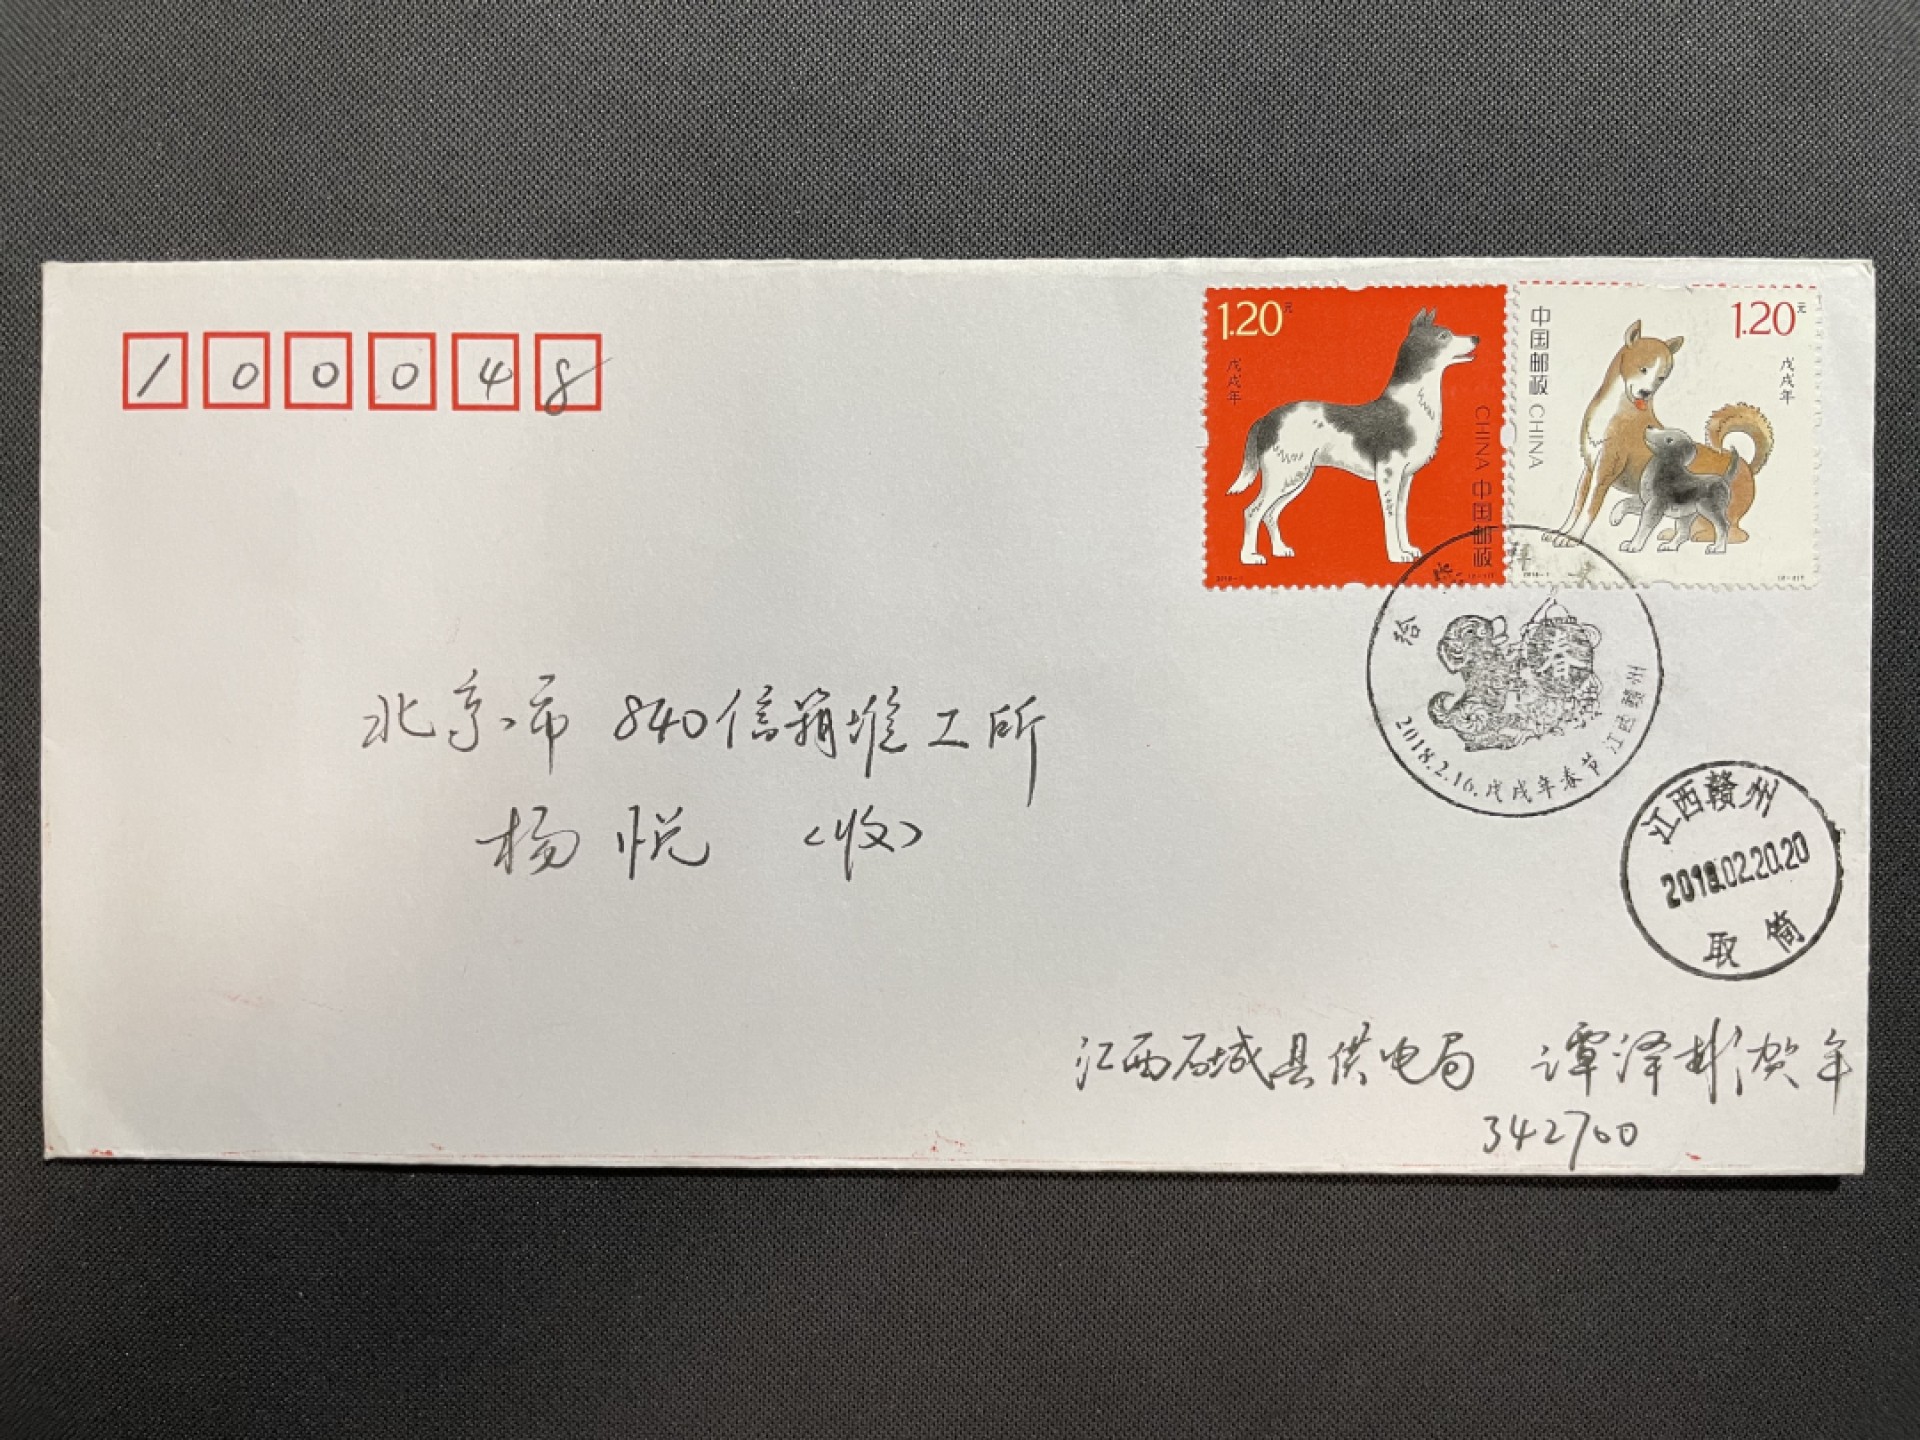 100048
1.20元
戊戌年
CHINA 中国邮政
2018-1
(2-1)T
中国邮政 CHINA
1.20元
戊戌年
2018-1
(2-2)T
给您拜年
春
2018.2.16.戊戌年春节 江西赣州
北京市 840信箱堆工所
杨悦 (收)
江西赣州
2018.02.20.20
取筒
江西石城县供电局 谭泽彬贺年
342700